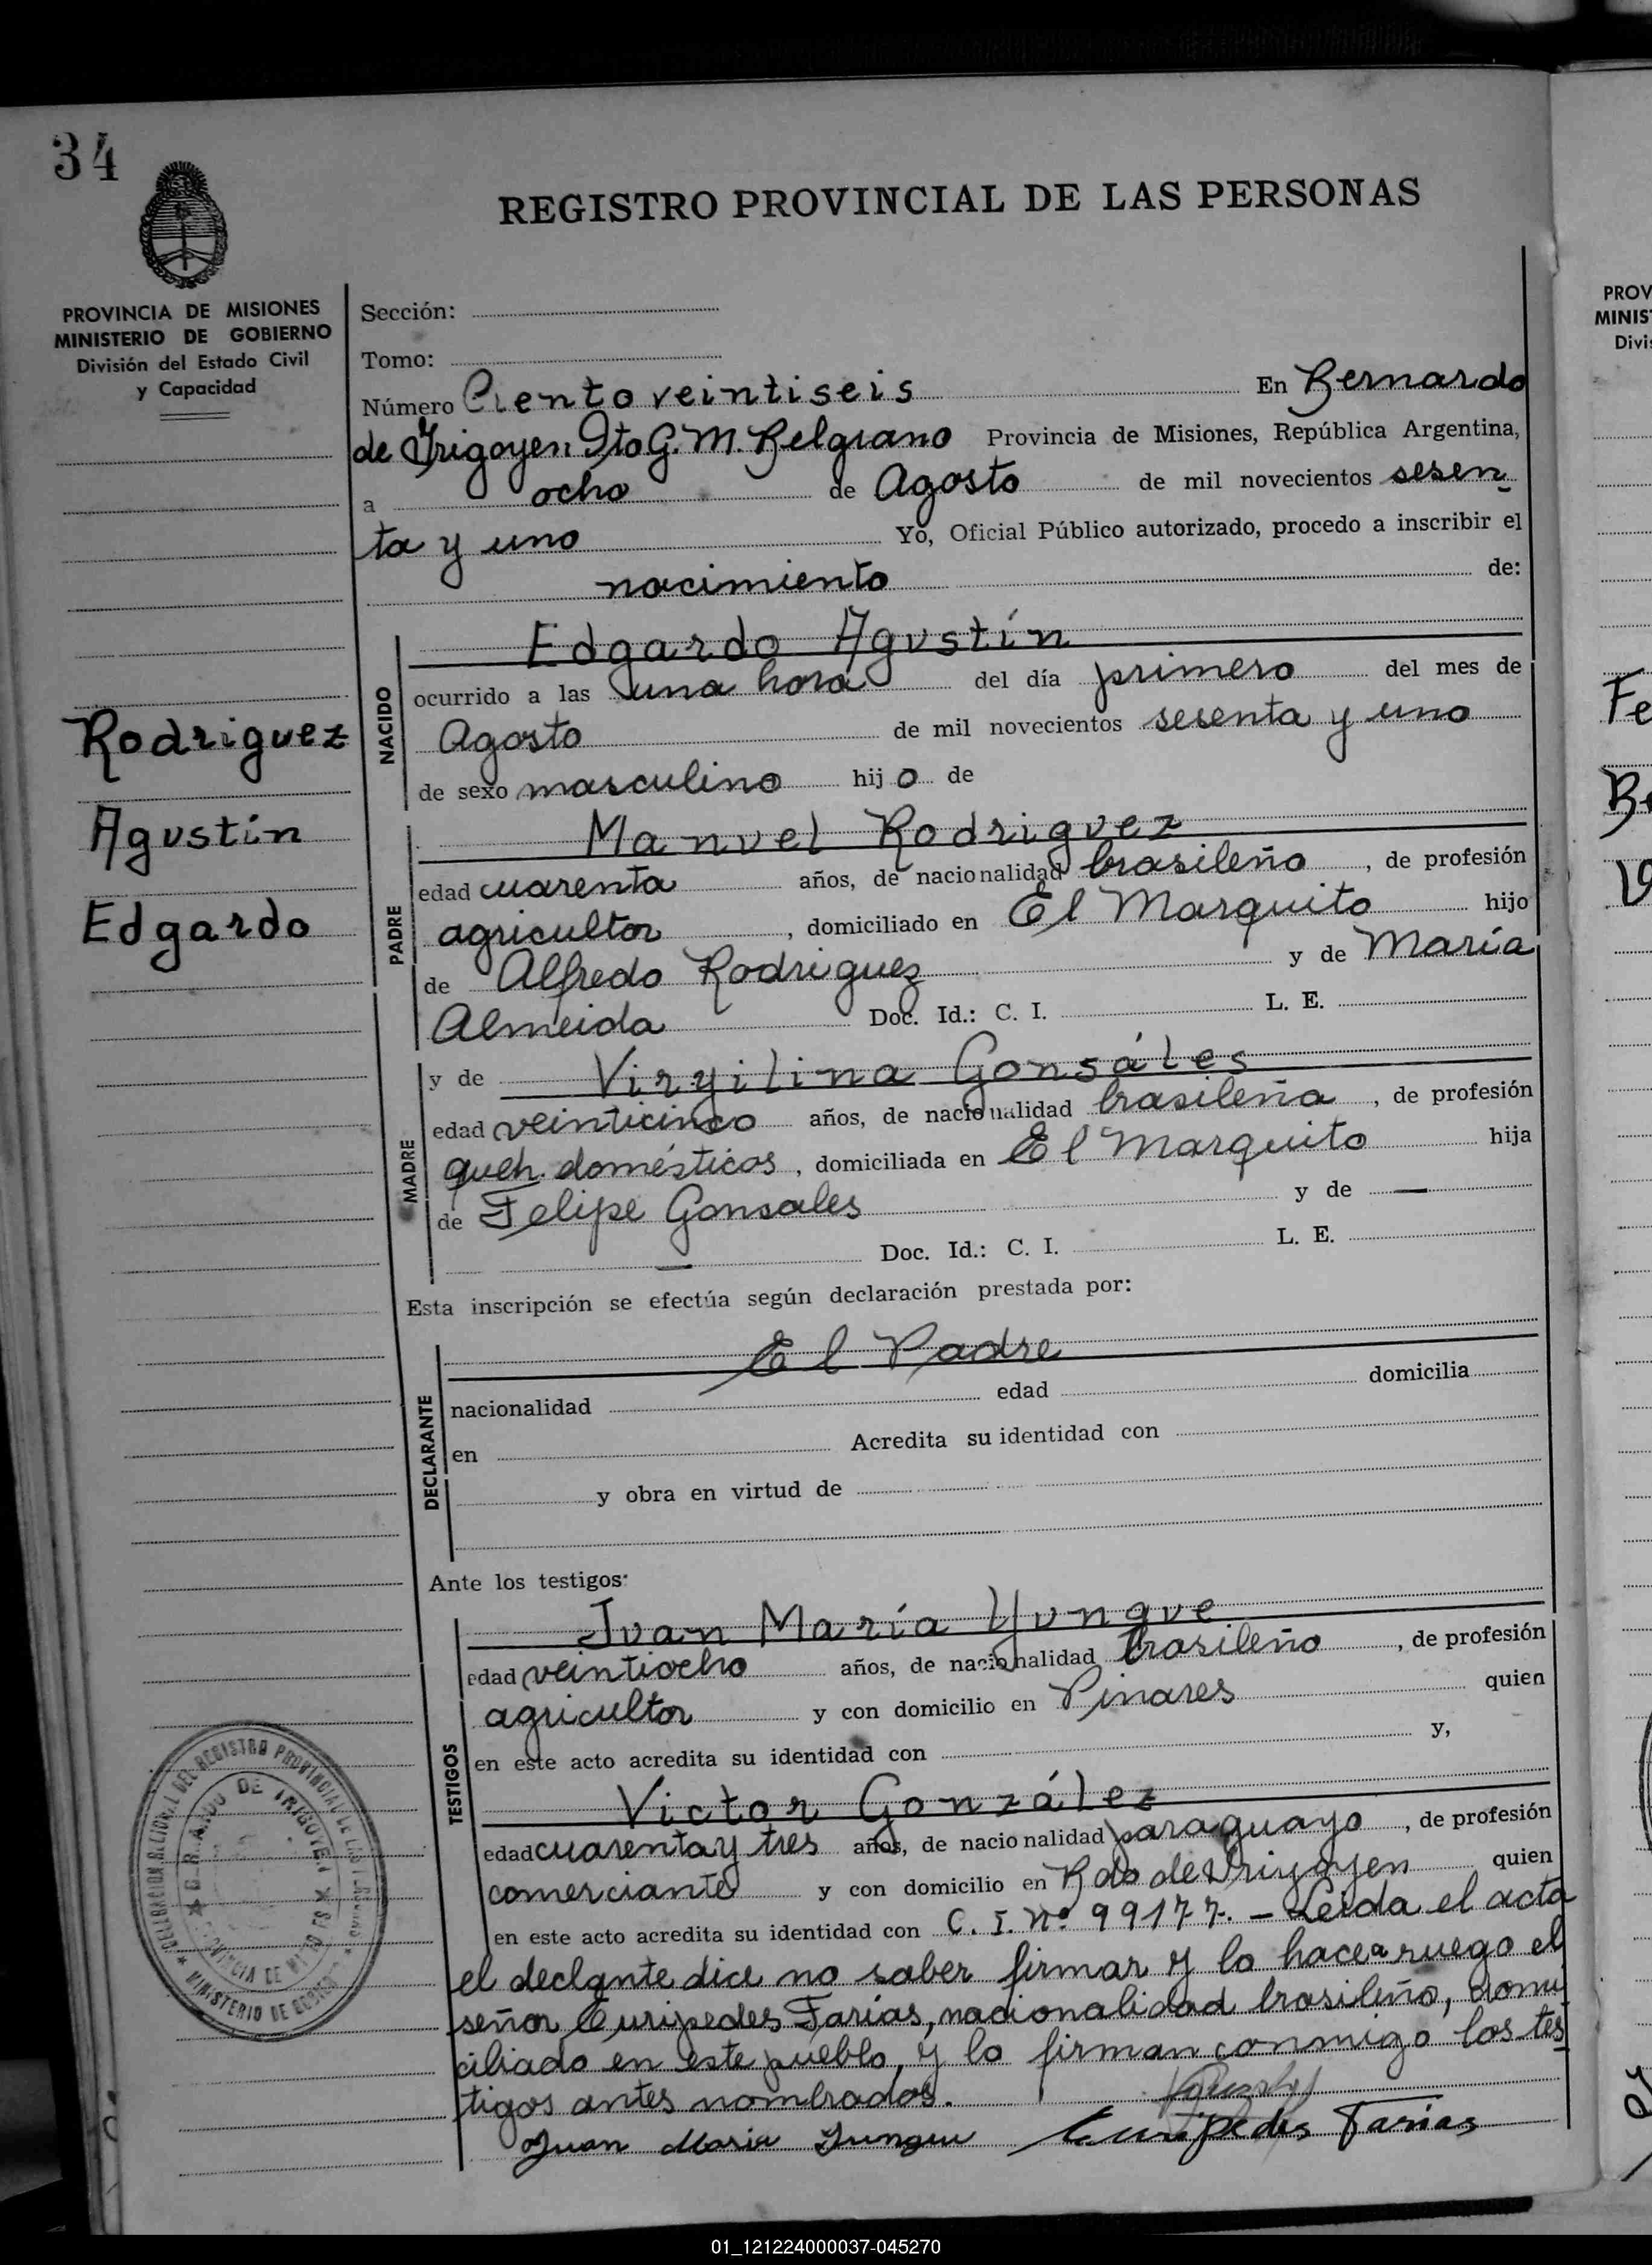 34
REGISTRO PROVINCIAL DE LAS PERSONAS
PROVINCIA DE MISIONES
MINISTERIO DE GOBIERNO
División del Estado Civil
y Capacidad
Rodriguez
Agustín
Edgardo
Sección:
Tomo:
Número Ciento veintiseis En Bernardo
de Yrigoyen Dto G. M. Belgrano Provincia de Misiones, República Argentina,
a ocho de Agosto de mil novecientos sesen
ta y uno Yo, Oficial Público autorizado, procedo a inscribir el
nacimiento de:
NACIDO
Edgardo Agustín
ocurrido a las una hora del día primero del mes de
Agosto de mil novecientos sesenta y uno
de sexo masculino hijo de
PADRE
Manuel Rodriguez
edad cuarenta años, de nacionalidad brasileño, de profesión
agricultor, domiciliado en El Marquito hijo
de Alfredo Rodriguez y de María
Almeida Doc. Id.: C. I. L. E.
MADRE
y de Virgilina Gonsáles
edad veinticinco años, de nacionalidad brasileña, de profesión
queh. domésticos, domiciliada en El Marquito hija
de Felipe Gonsales y de —
— Doc. Id.: C. I. L. E.
Esta inscripción se efectúa según declaración prestada por:
DECLARANTE
El Padre
nacionalidad edad domicilia
en Acredita su identidad con
y obra en virtud de
Ante los testigos:
TESTIGOS
Juan María Yungue
edad veintiocho años, de nacionalidad brasileño, de profesión
agricultor y con domicilio en Pinares quien
en este acto acredita su identidad con y,
Victor González
edad cuarenta y tres años, de nacionalidad paraguayo, de profesión
comerciante y con domicilio en Bdo de Yrigoyen quien
en este acto acredita su identidad con C. I. Nº 99177. — Leida el acta
el declante dice no saber firmar y lo hace a ruego el
señor Euripedes Farías, nacionalidad brasileño, domi
ciliado en este pueblo, y lo firman conmigo los tes
tigos antes nombrados.
Juan Maria Jungue Euripedes Farias
DELEGACION DEL REGISTRO PROVINCIAL DE LAS PERSONAS
DE IRIGOYEN
PROVINCIA DE MISIONES
MINISTERIO DE GOBIERNO
PROV
MINIS
Divi
Fe
01_121224000037-045270